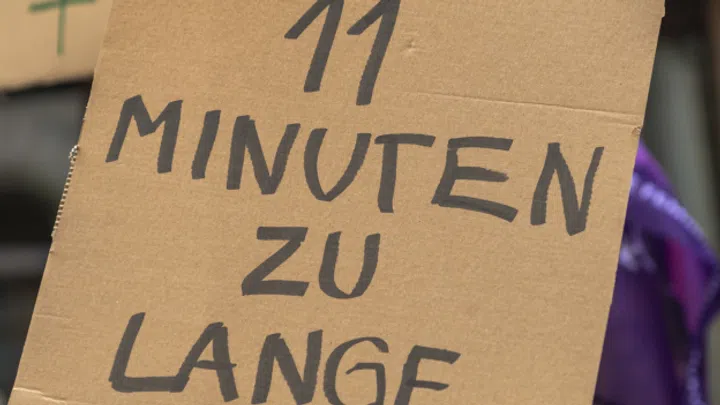 11
MINUTEN
ZU
LANGE